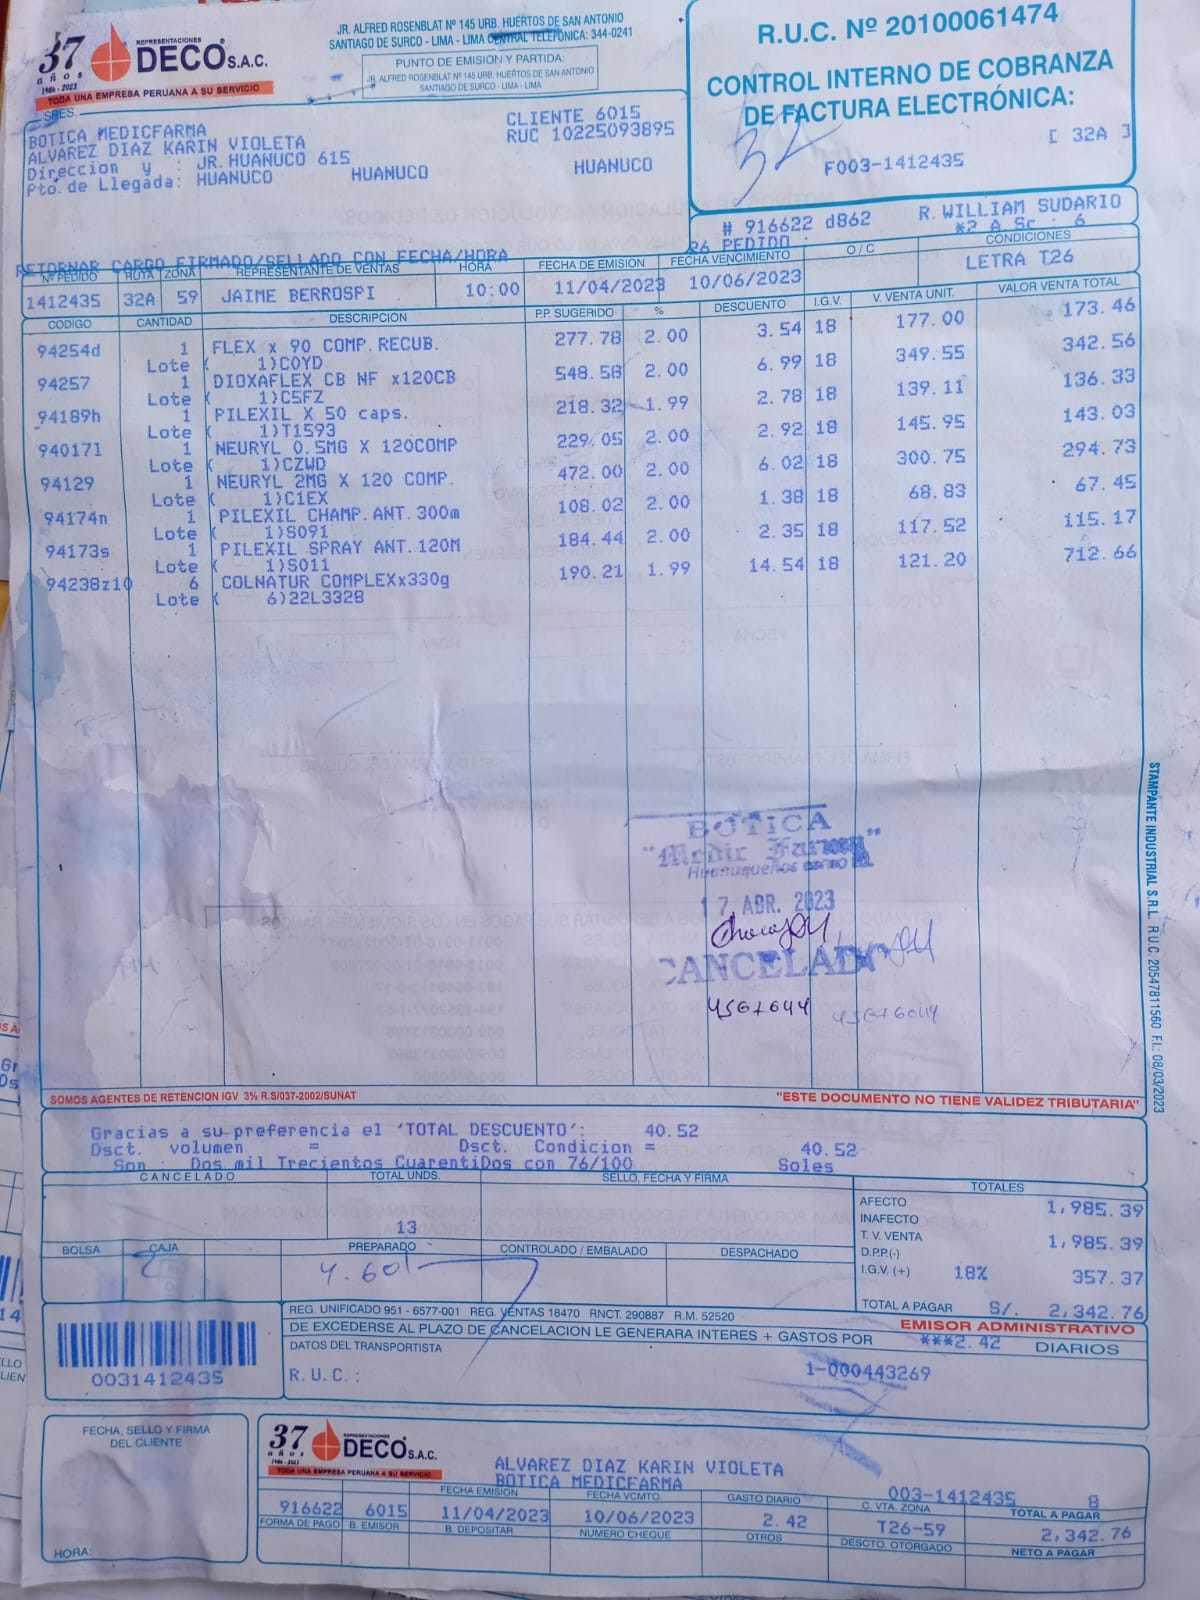 37 años 1986 - 2023 REPRESENTACIONES DECO S.A.C.
TODA UNA EMPRESA PERUANA A SU SERVICIO
JR. ALFRED ROSENBLAT Nº 145 URB. HUERTOS DE SAN ANTONIO
SANTIAGO DE SURCO - LIMA - LIMA CENTRAL TELEFONICA: 344-0241
PUNTO DE EMISION Y PARTIDA:
JR. ALFRED ROSENBLAT Nº 145 URB. HUERTOS DE SAN ANTONIO
SANTIAGO DE SURCO - LIMA - LIMA
R.U.C. Nº 20100061474
CONTROL INTERNO DE COBRANZA
DE FACTURA ELECTRÓNICA:
[ 32A ]
32
F003-1412435
SRES.
BOTICA MEDICFARMA
ALVAREZ DIAZ KARIN VIOLETA
Direccion y : JR. HUANUCO 615
Pto. de Llegada: HUANUCO HUANUCO HUANUCO
CLIENTE 6015
RUC 10225093895
# 916622 d862 R. WILLIAM SUDARIO
26 PEDIDO : *2 A Sc : 6
RETORNAR CARGO FIRMADO/SELLADO CON FECHA/HORA
Nº PEDIDO RUTA ZONA REPRESENTANTE DE VENTAS HORA FECHA DE EMISION FECHA VENCIMIENTO O / C CONDICIONES
1412435 32A 59 JAIME BERROSPI 10:00 11/04/2023 10/06/2023 LETRA T26
CODIGO CANTIDAD DESCRIPCION P.P. SUGERIDO % DESCUENTO I.G.V. V. VENTA UNIT. VALOR VENTA TOTAL
94254d 1 FLEX x 90 COMP.RECUB. 277.78 2.00 3.54 18 177.00 173.46
Lote ( 1)COYD
94257 1 DIOXAFLEX CB NF x120CB 548.58 2.00 6.99 18 349.55 342.56
Lote ( 1)C5FZ
94189h 1 PILEXIL X 50 caps. 218.32 1.99 2.78 18 139.11 136.33
Lote ( 1)T1593
94017l 1 NEURYL 0.5MG X 120COMP 229.05 2.00 2.92 18 145.95 143.03
Lote ( 1)CZWD
94129 1 NEURYL 2MG X 120 COMP. 472.00 2.00 6.02 18 300.75 294.73
Lote ( 1)C1EX
94174n 1 PILEXIL CHAMP.ANT.300m 108.02 2.00 1.38 18 68.83 67.45
Lote ( 1)S091
94173s 1 PILEXIL SPRAY ANT.120M 184.44 2.00 2.35 18 117.52 115.17
Lote ( 1)S011
94238z10 6 COLNATUR COMPLEXx330g 190.21 1.99 14.54 18 121.20 712.66
Lote ( 6)22L3328
BOTICA
"Medic Farma"
17 ABR. 2023
CANCELADO
45676044 45676044
STAMPANTE INDUSTRIAL S.R.L. R.U.C. 20547811560 F.I.: 08/03/2023
SOMOS AGENTES DE RETENCION IGV 3% R.S/037-2002/SUNAT
"ESTE DOCUMENTO NO TIENE VALIDEZ TRIBUTARIA"
Gracias a su preferencia el 'TOTAL DESCUENTO': 40.52
Dsct. volumen = Dsct. Condicion = 40.52
Son : Dos mil Trecientos CuarentiDos con 76/100 Soles
CANCELADO TOTAL UNDS. SELLO, FECHA Y FIRMA TOTALES
13
AFECTO 1,985.39
INAFECTO
T. V. VENTA 1,985.39
D.P.P.(-)
I.G.V. (+) 18% 357.37
TOTAL A PAGAR S/. 2,342.76
BOLSA CAJA PREPARADO CONTROLADO / EMBALADO DESPACHADO
2
REG. UNIFICADO 951 - 6577-001 REG. VENTAS 18470 RNCT. 290887 R.M. 52520
EMISOR ADMINISTRATIVO
DE EXCEDERSE AL PLAZO DE CANCELACION LE GENERARA INTERES + GASTOS POR ***2.42 DIARIOS
DATOS DEL TRANSPORTISTA
R. U. C. :
1-000443269
0031412435
FECHA, SELLO Y FIRMA
DEL CLIENTE
HORA:
37 años 1986 - 2023 REPRESENTACIONES DECO S.A.C.
TODA UNA EMPRESA PERUANA A SU SERVICIO
ALVAREZ DIAZ KARIN VIOLETA
BOTICA MEDICFARMA
003-1412435 8
FECHA EMISION FECHA VCMTO. GASTO DIARIO C. VTA. ZONA TOTAL A PAGAR
916622 6015 11/04/2023 10/06/2023 2.42 T26-59 2,342.76
FORMA DE PAGO B. EMISOR B. DEPOSITAR NUMERO CHEQUE OTROS DESCTO. OTORGADO NETO A PAGAR